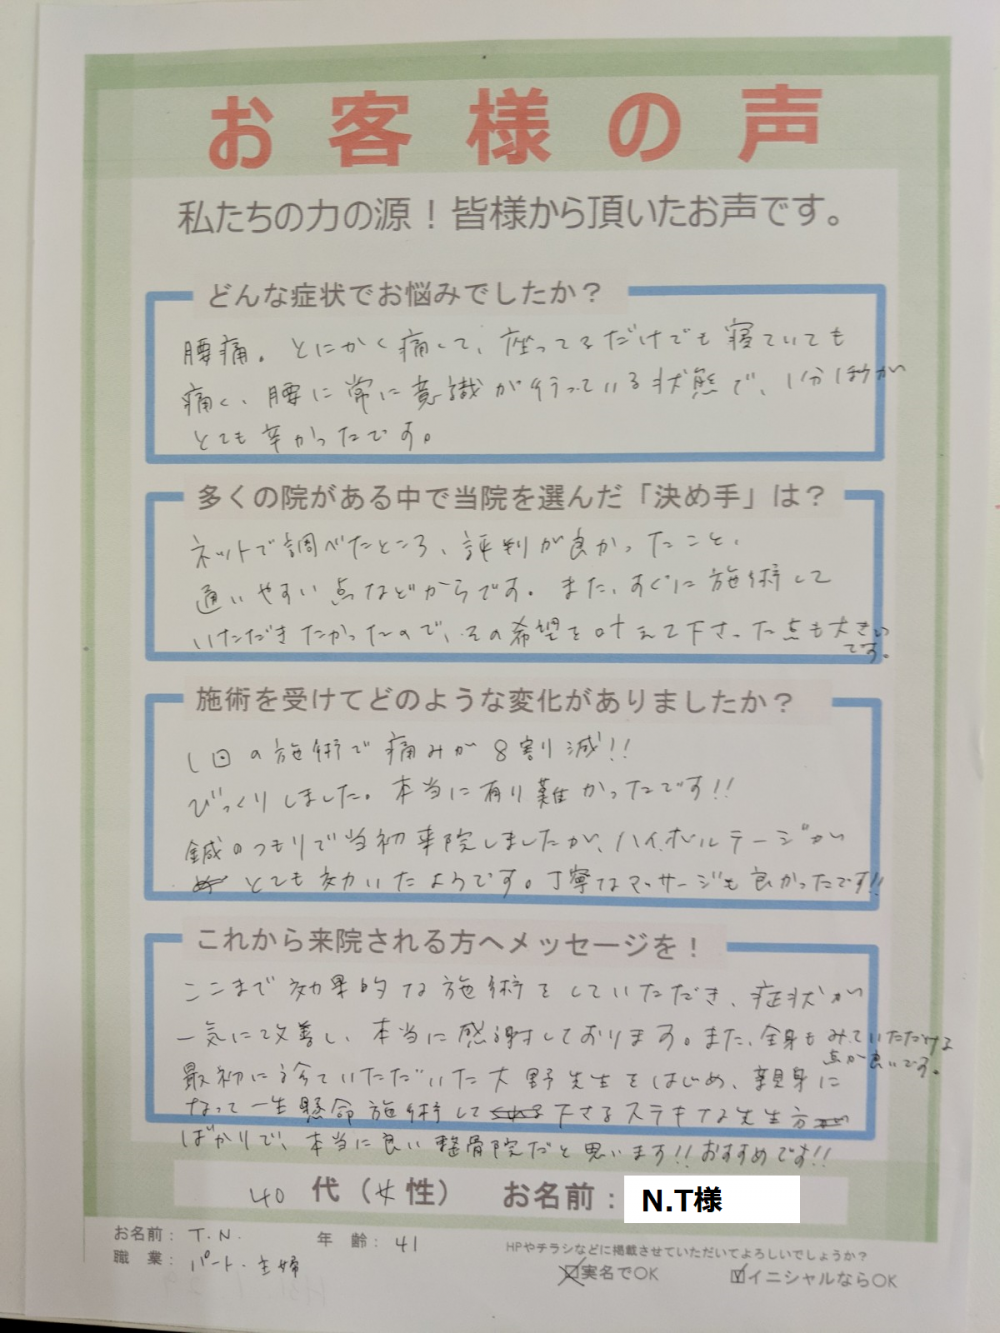 お客様の声
私たちの力の源！皆様から頂いたお声です。
どんな症状でお悩みでしたか？
腰痛。とにかく痛くて、座ってるだけでも寝ていても
痛く、腰に常に意識が行っている状態で、1分1秒が
とても辛かったです。
多くの院がある中で当院を選んだ「決め手」は？
ネットで調べたところ、評判が良かったこと、
通いやすい点などからです。また、すぐに施術して
いただきたかったので、その希望を叶えて下さった点も大きい
です。
施術を受けてどのような変化がありましたか？
1回の施術で痛みが8割減!!
びっくりしました。本当に有り難かったです!!
鍼のつもりで当初来院しましたが、ハイボルテージが
とても効いたようです。丁寧なマッサージも良かったです!!
これから来院される方へメッセージを！
ここまで効果的な施術をしていただき、症状が
一気に改善し、本当に感謝しております。また、全身もみていただける
点が良いです。
最初に診ていただいた大野先生をはじめ、親身に
なって一生懸命施術して下さるステキな先生方
ばかりで、本当に良い整骨院だと思います!!おすすめです!!
40代（女性） お名前：N.T様
お名前：T.N. 年齢：41
職業：パート・主婦
HPやチラシなどに掲載させていただいてよろしいでしょうか？
実名でOK イニシャルならOK